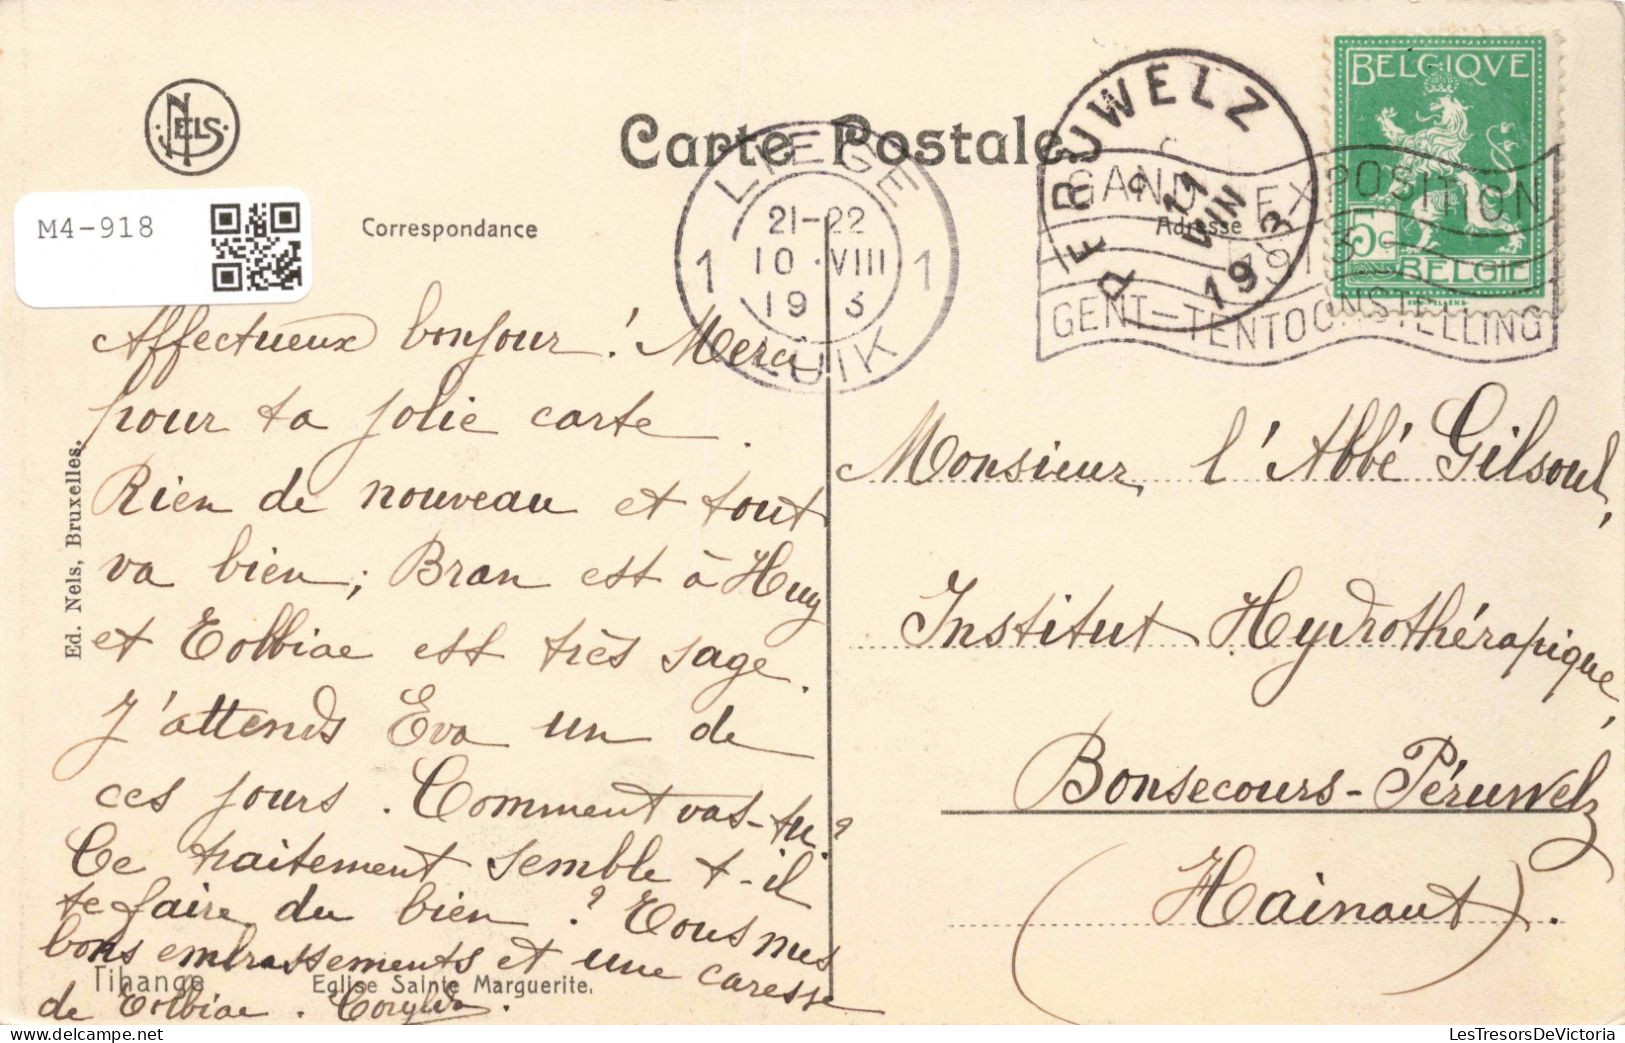 NELS
M4-918
Correspondance
Carte Postale
Adresse
LIEGE
21-22
10 VIII
19 3
1 1
LUIK
PERUWELZ
9
11
VIII
19 3
GAND EXPOSITION
1913
GENT-TENTOONSTELLING
BELGIQVE
5c
BELGIE
Affectueux bonjour ! Merci
pour ta jolie carte.
Rien de nouveau et tout
va bien ; Bran est à Huy
et Tolbiac est très sage.
J'attends Eva un de
ces jours. Comment vas-tu ?
Ce traitement semble t-il
te faire du bien ? Tous mes
bons embrassements et une caresse
de Tolbiac.
Monsieur l'Abbé Gilsoul,
Institut Hydrothérapique,
Bonsecours-Péruwelz
(Hainaut).
Ed. Nels, Bruxelles.
Tihange Eglise Sainte Marguerite.
LesTresorsDeVictoria.com